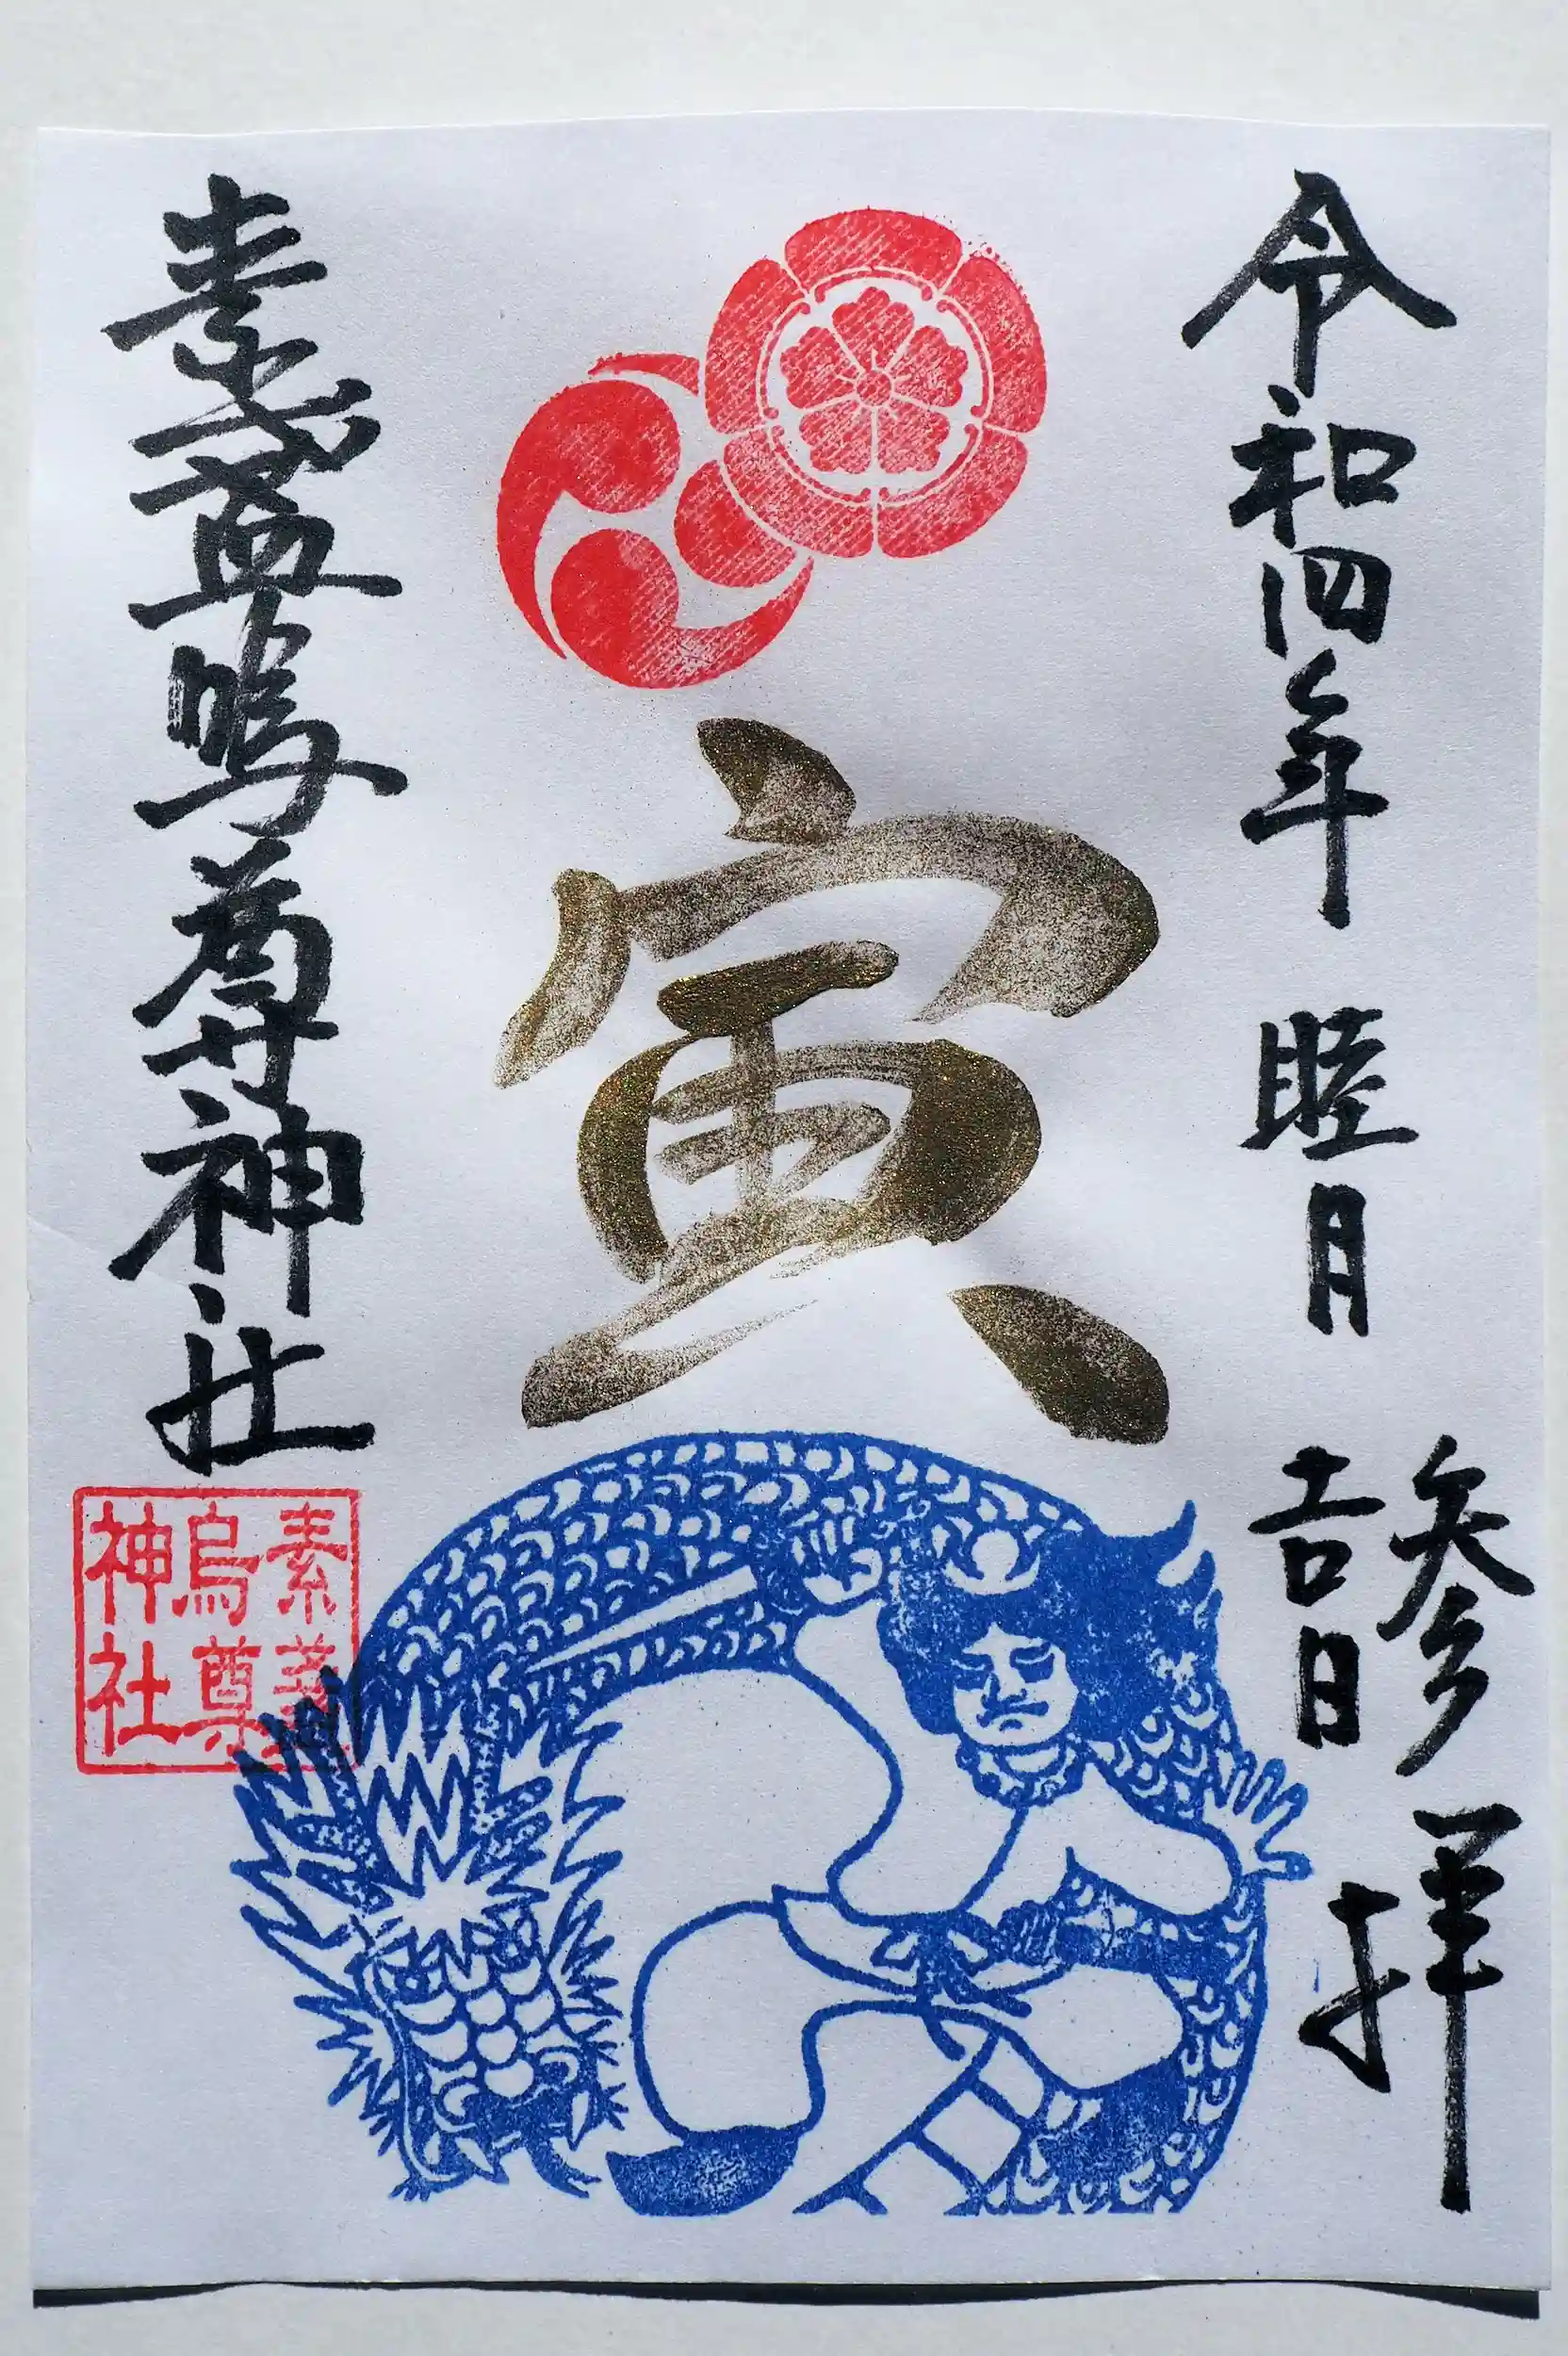 令和四年 睦月 吉日
参拝
寅
素盞嗚尊神社
素盞
烏尊
神社